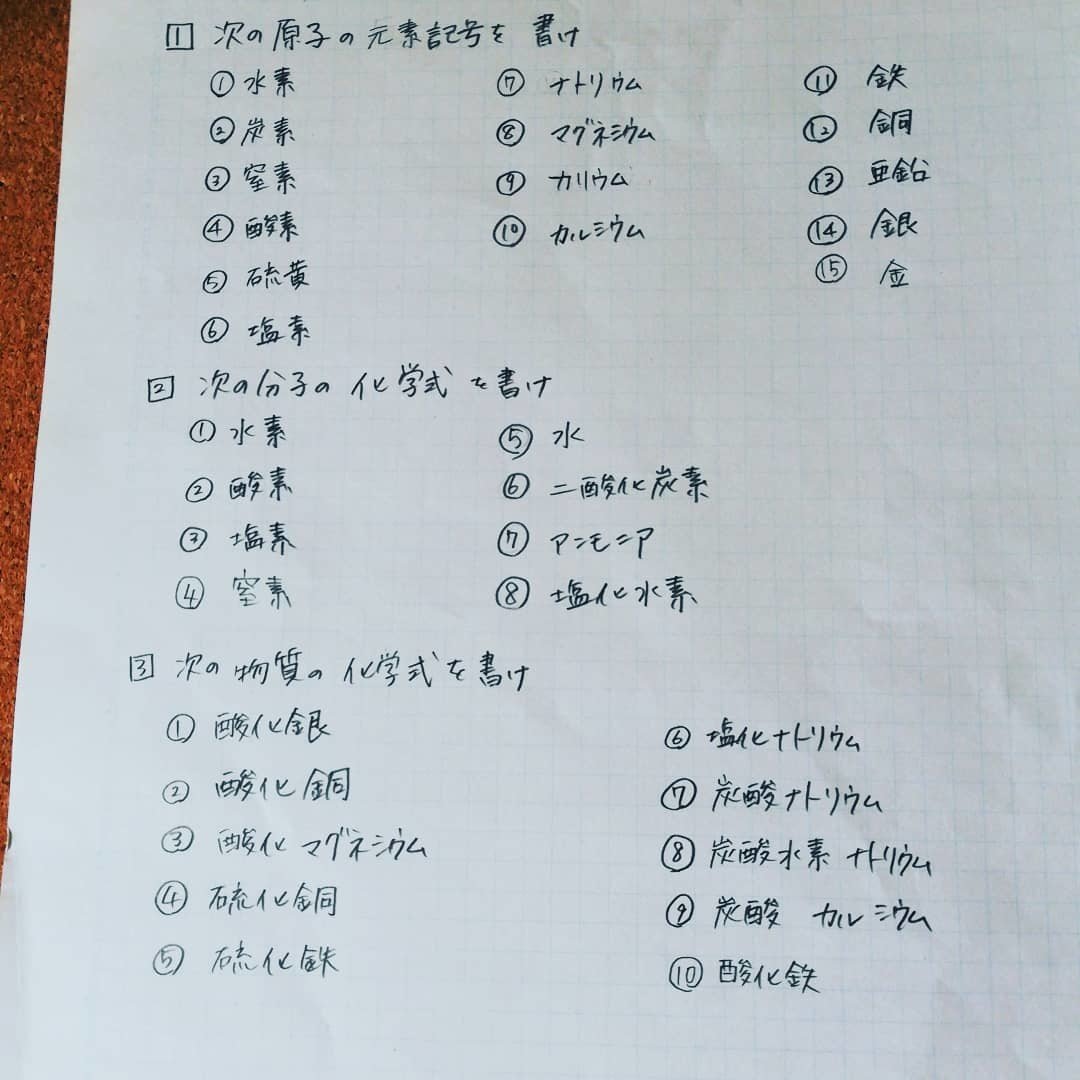 1 次の原子の元素記号を書け
① 水素 ⑦ ナトリウム ⑪ 鉄
② 炭素 ⑧ マグネシウム ⑫ 銅
③ 窒素 ⑨ カリウム ⑬ 亜鉛
④ 酸素 ⑩ カルシウム ⑭ 銀
⑤ 硫黄 ⑮ 金
⑥ 塩素
2 次の分子の化学式を書け
① 水素 ⑤ 水
② 酸素 ⑥ 二酸化炭素
③ 塩素 ⑦ アンモニア
④ 窒素 ⑧ 塩化水素
3 次の物質の化学式を書け
① 酸化銀 ⑥ 塩化ナトリウム
② 酸化銅 ⑦ 炭酸ナトリウム
③ 酸化マグネシウム ⑧ 炭酸水素ナトリウム
④ 硫化銅 ⑨ 炭酸カルシウム
⑤ 硫化鉄 ⑩ 酸化鉄